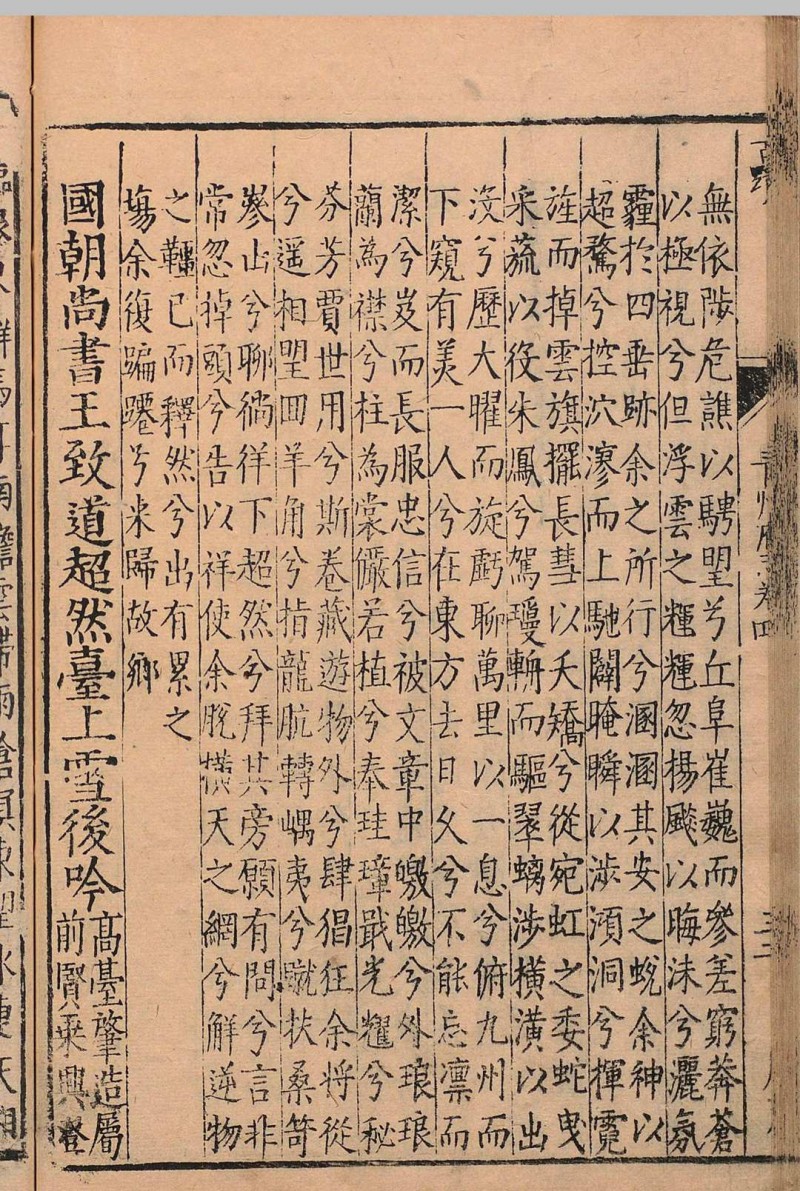 無依陟危譙以騁望兮丘阜崔巍而參差窮莽蒼
以極視兮但浮雲之輝輝忽揚飈以晦沬兮灑氛
霾於四垂跡余之所行兮溷溷其安之蛻余神以
超騖兮控泬寥而上馳闢晻瞬以涉澒洞兮揮霓
旌而掉雲旗擺長彗以夭矯兮從宛虹之委蛇曳
采蓏以役朱鳳兮駕瓊輈而驅翠螭涉橫潢以出
沒兮歷大曜而旋虧聊萬里以一息兮俯九州而
下窺有美一人兮在東方去日久兮不能忘凜而
潔兮岌而長服忠信兮被文章中皦皦兮外琅琅
蘭為襟兮柱為裳儼若植兮奉珪璋戢光耀兮秘
芬芳賈世用兮斯卷藏遊物外兮肆猖狂余將從
兮遥相望回羊角兮指龍肮轉嵎夷兮蹴扶桑笴
嵾山兮聊徜徉下超然兮拜其旁願有問兮言非
常忽掉頭兮告以祥使余脫橫天之網兮解逆物
之韁已而釋然兮出有累之
塲余復蹁躚兮来歸故鄉
國朝尚書王致道超然臺上雪後吟
高臺肇造屬
前賢乘興
青州府志卷四